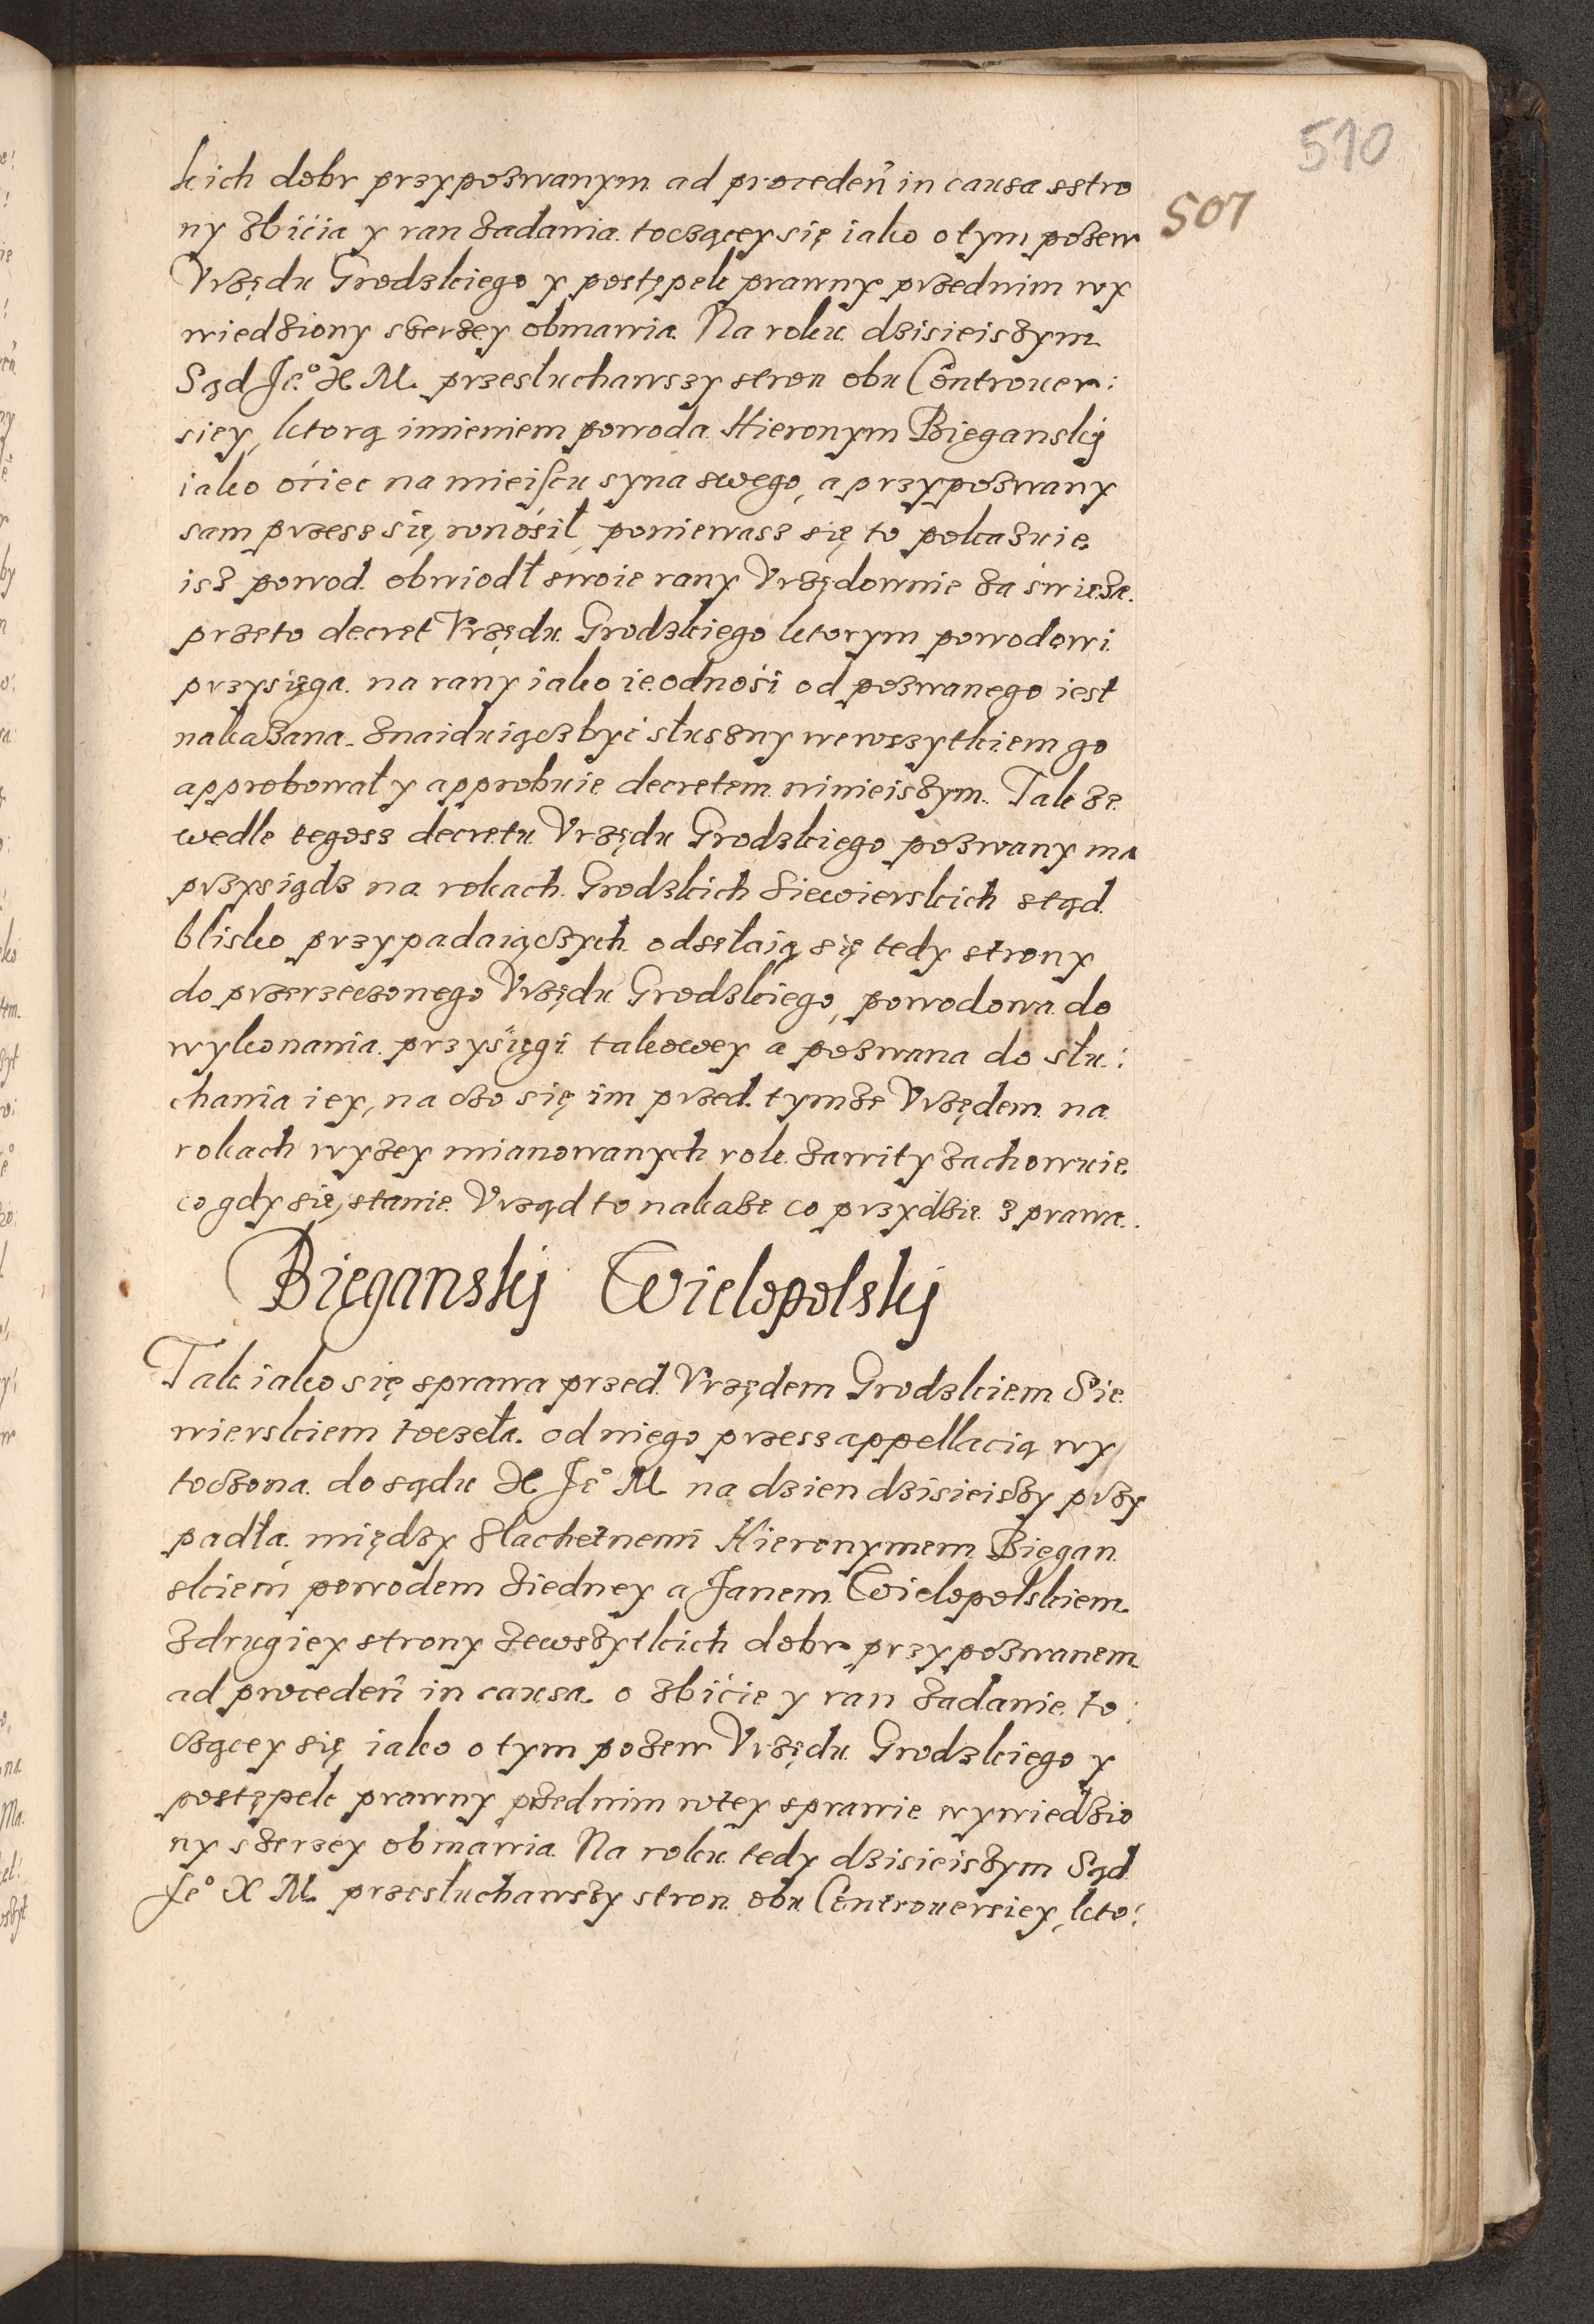 510
507
kich dobr przypozwanym ad proceden̄ in causa sstro
ny zbićia y ran zadania toczącey się iako o tym pozew
Vrzędu Grodzkiego y postępek prawny przed nim wy
wiedziony szerzey obmawia. Na roku dzisieiszym
Sąd Je.° X M. przesłuchawszy stron obu Controuer:
siey, ktorą imieniem powoda Hieronym Bięganskij
iako oćiec na mieiscu syna swego, a przypozwany
sam przess się wnośił, poniewasz się to pokazuie
isz powod obwiodł swoie rany Vrzędownie za świeża.
przeto decret Vrzędu Grodzkiego ktorym powodowi
przysięga na rany iako ie odnośi od pozwanego iest
nakazana. znaiduiącz być słuszny we wszytkiem go
approbował y approbuie decretem ninieiszym. Tak że
wedle tegosz decretu Vrzędu Grodzkiego pozwany ma
przysiądz na rokach Grodzkich Siewierskich stąd
blisko przypadaiączych odsełaią się tedy strony
do przerzeczonego Vrzędu Grodzkiego, powodowa do
wykonania przysięgi takowey a pozwana do słu:
chania iey, na czo się im przed tymże Vrzędem na
rokach wyżey mianowanych rok zawity zachowuie.
co gdy się stanie Vrząd to nakaże co przydzie z prawa.
Bięganskij Wielopolskij
Tak iako się sprawa przed Vrzędem Grodzkiem Sie
wierskiem toczeła. od niego przesz appellacią wy
toczona do sądu X Je° M na dzien dzisieiszy przy
padła między szlachetnemi Hieronymem Bięgan
skiem powodem ziedney a Janem Wielopolskiem
z drugiey strony ze wszytkich dobr przypozwanem
ad proceden̄ in causa o zbićie y ran zadanie to:
czącey się iako o tym pozew Vrzędu Grodzkiego y
postępek prawny przed nim w tey sprawie wywiedzio
ny szerzey obmawia. Na roku tedy dzisieiszym Sąd
Je° X M. przesłuchawszy stron obu Controuersiey, kto: